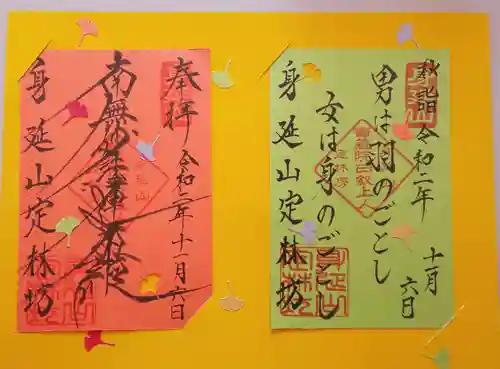 奉拝
令和二年十一月六日
南無妙法蓮華経
身延山定林坊
秋詣
令和二年
十一月
六日
男は羽のごとし
女は身のごとし
身延山定林坊